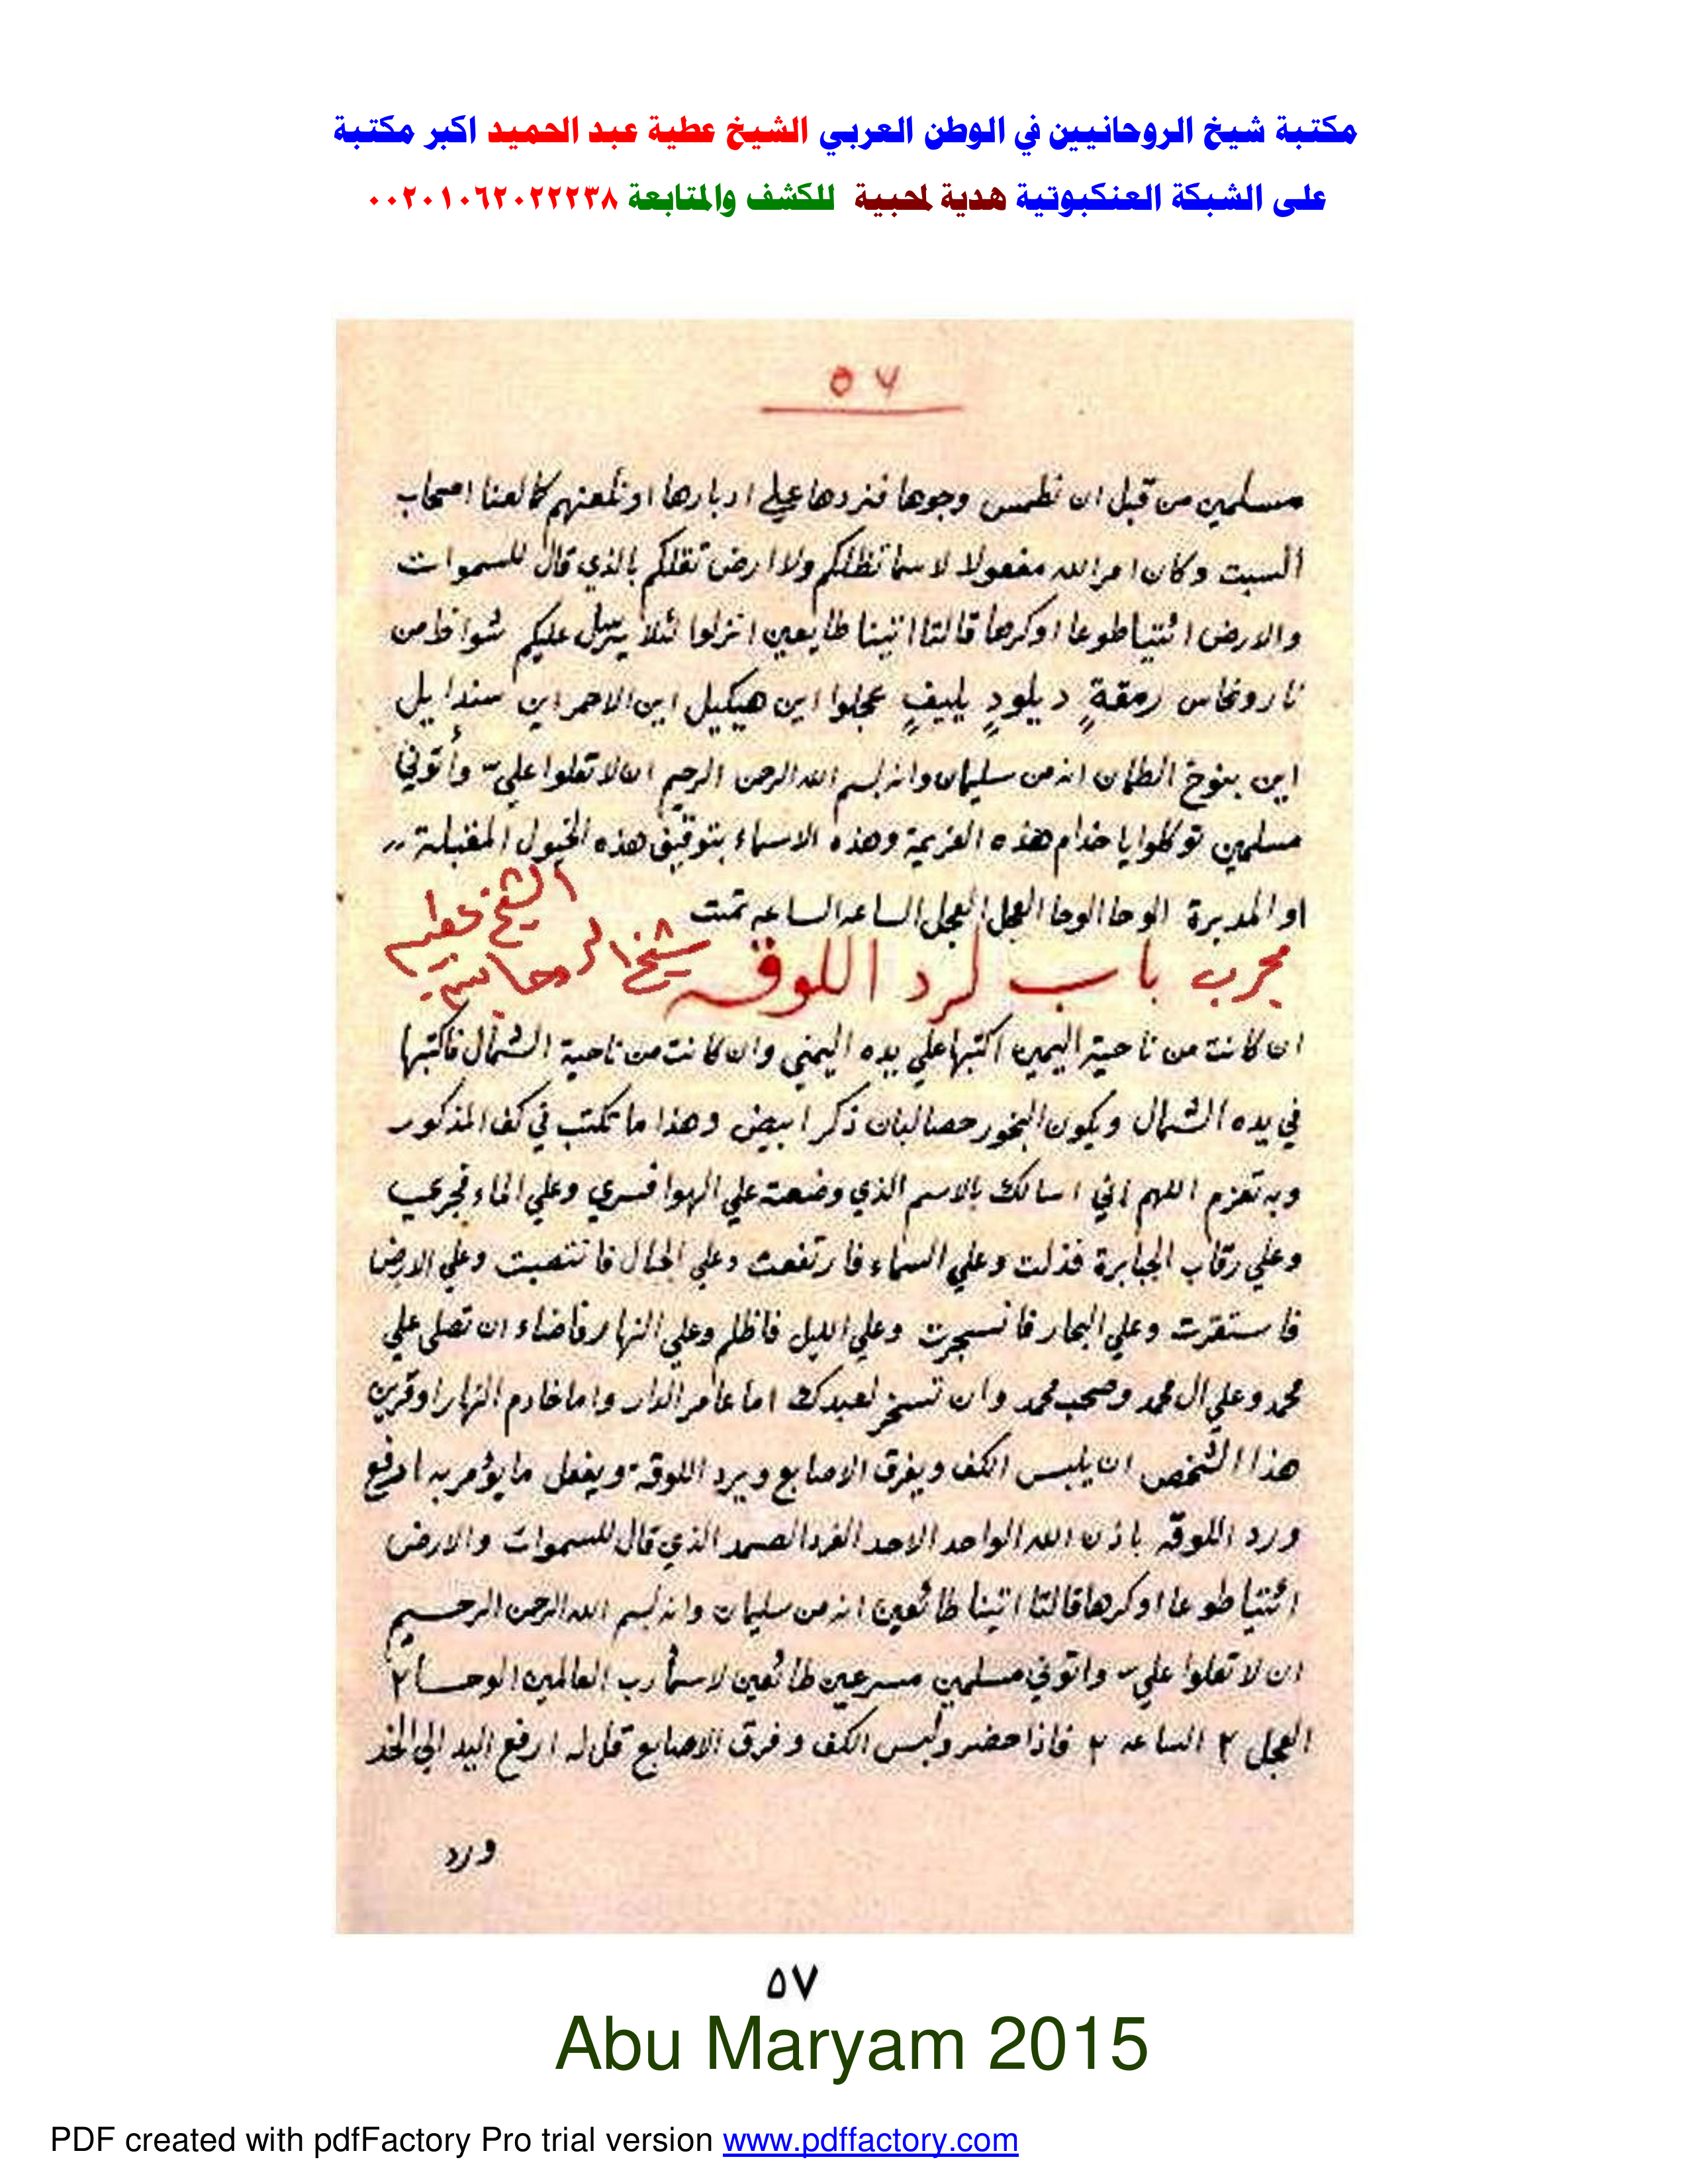 مكتبة شيخ الروحانيين في الوطن العربي الشيخ عطية عبد الحميد اكبر مكتبة
على الشبكة العنكبوتية هدية لمحبية للكشف والمتابعة ٠٠٢٠١٠٦٢٠٢٢٢٣٨
٥٧
مسلمين من قبل ان نطمس وجوها فنردها علي ادبارها او نلعنهم كما لعنا اصحاب
السبت وكان امر الله مفعولا لا سما تظلكم ولا ارض تقلكم بالذي قال للسموات
والارض ائتيا طوعا اوكرها قالتا اتينا طايعين انزلوا لئلا يرسل عليكم شواظ من
نار ونحاس رمقة ديلود يليف عجلوا اين هيكيل اين الاحمر اين سندايل
اين انه من سليمان وانه بسم الله الرحمن الرحيم ان لا تعلوا علي وأتوني
مسلمين توكلوا يا خدام هذه العزيمة وهذه الاسماء بتوقيف هذه الخيول المقبلة
او المدبرة الوحا الوحا العجل العجل الساعه الساعه تمت
الشيخ عطيه
شيخ الروحانيين
مجرب باب لرد اللوقه
ان كانت من ناحية اليمين اكتبها علي يده اليمني وان كانت من ناحية الشمال فاكتبها
في يده الشمال ويكون البخور حصالبان ذكر ابيض وهذا ما تكتب في كف المذكور
وبه تعزم اللهم اني اسالك بالاسم الذي وضعته علي الهوا فسري وعلي الماء فجري
وعلي رقاب الجبابرة فذلت وعلي السماء فارتفعت وعلي الجبال فانتصبت وعلي الارض
فاستقرت وعلي البحار فانسجرت وعلي الليل فاظلم وعلي النهار فاضاء ان تصلي علي
محمد وعلي ال محمد وصحب محمد وان تسخر لعبدك اما عامر الدار واما خادم النهار او قرين
هذا الشخص ان يلبس الكف ويفرق الاصابع ويرد اللوقة ويفعل ما يؤمر به ارفع
ورد اللوقه باذن الله الواحد الاحد الفرد الصمد الذي قال للسموات والارض
ائتيا طوعا اوكرها قالتا اتينا طائعين انه من سليمان وانه بسم الله الرحمن الرحيم
ان لا تعلوا علي واتوني مسلمين مسرعين طائعين لاسماء رب العالمين الوحا ٢
العجل ٢ الساعه ٢ فاذا حضر ولبس الكف وفرق الاصابع قل له ارفع اليد الي الخد
ورد
٥٧
Abu Maryam 2015
PDF created with pdfFactory Pro trial version www.pdffactory.com